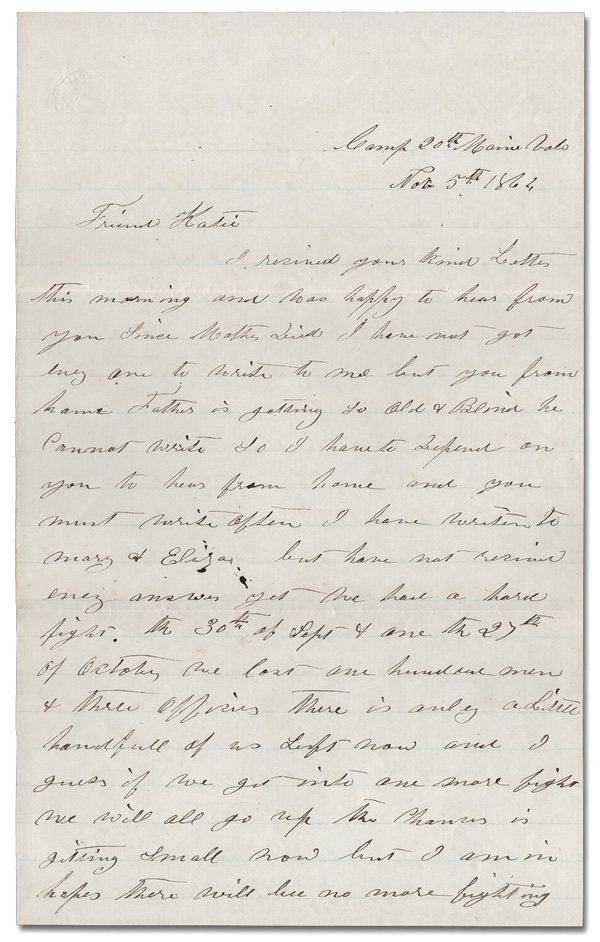 Camp 20th Maine Vols
Nov 5th 1864
Friend Katie
I recived your kind Letter
this morning and was happy to hear from
you Since Mother Died I have not got
eney one to write to me but you from
home Father is gitting so Old & Blind he
Cannot write so I have to Depend on
you to hear from home and you
must write often I have writen to
mary & Eliza but have not recived
eney answer yet We had a hard
fight. th 30th of Sept & one th 27th
of October we lost one hundred men
& three Officers there is only a Little
handfull of us Left now and I
guess if we get into one more fight
we will all go up the Chances is
gitting Small now but I am in
hopes there will bee no more fighting